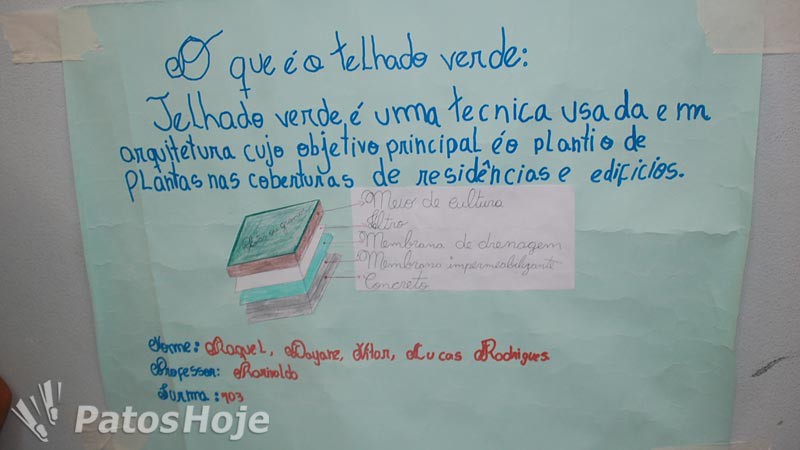 O que é o telhado verde:
Telhado verde é uma tecnica usada em
arquitetura cujo objetivo principal é o plantio de
plantas nas coberturas de residências e edificios.
Meio de cultura
Filtro
Membrana de drenagem
Membrana impermeabilizante
Concreto
Nome: Raquel, Dayane, Lucas Rodrigues
Professor: Ronaldo
Turma: 703
PatosHoje